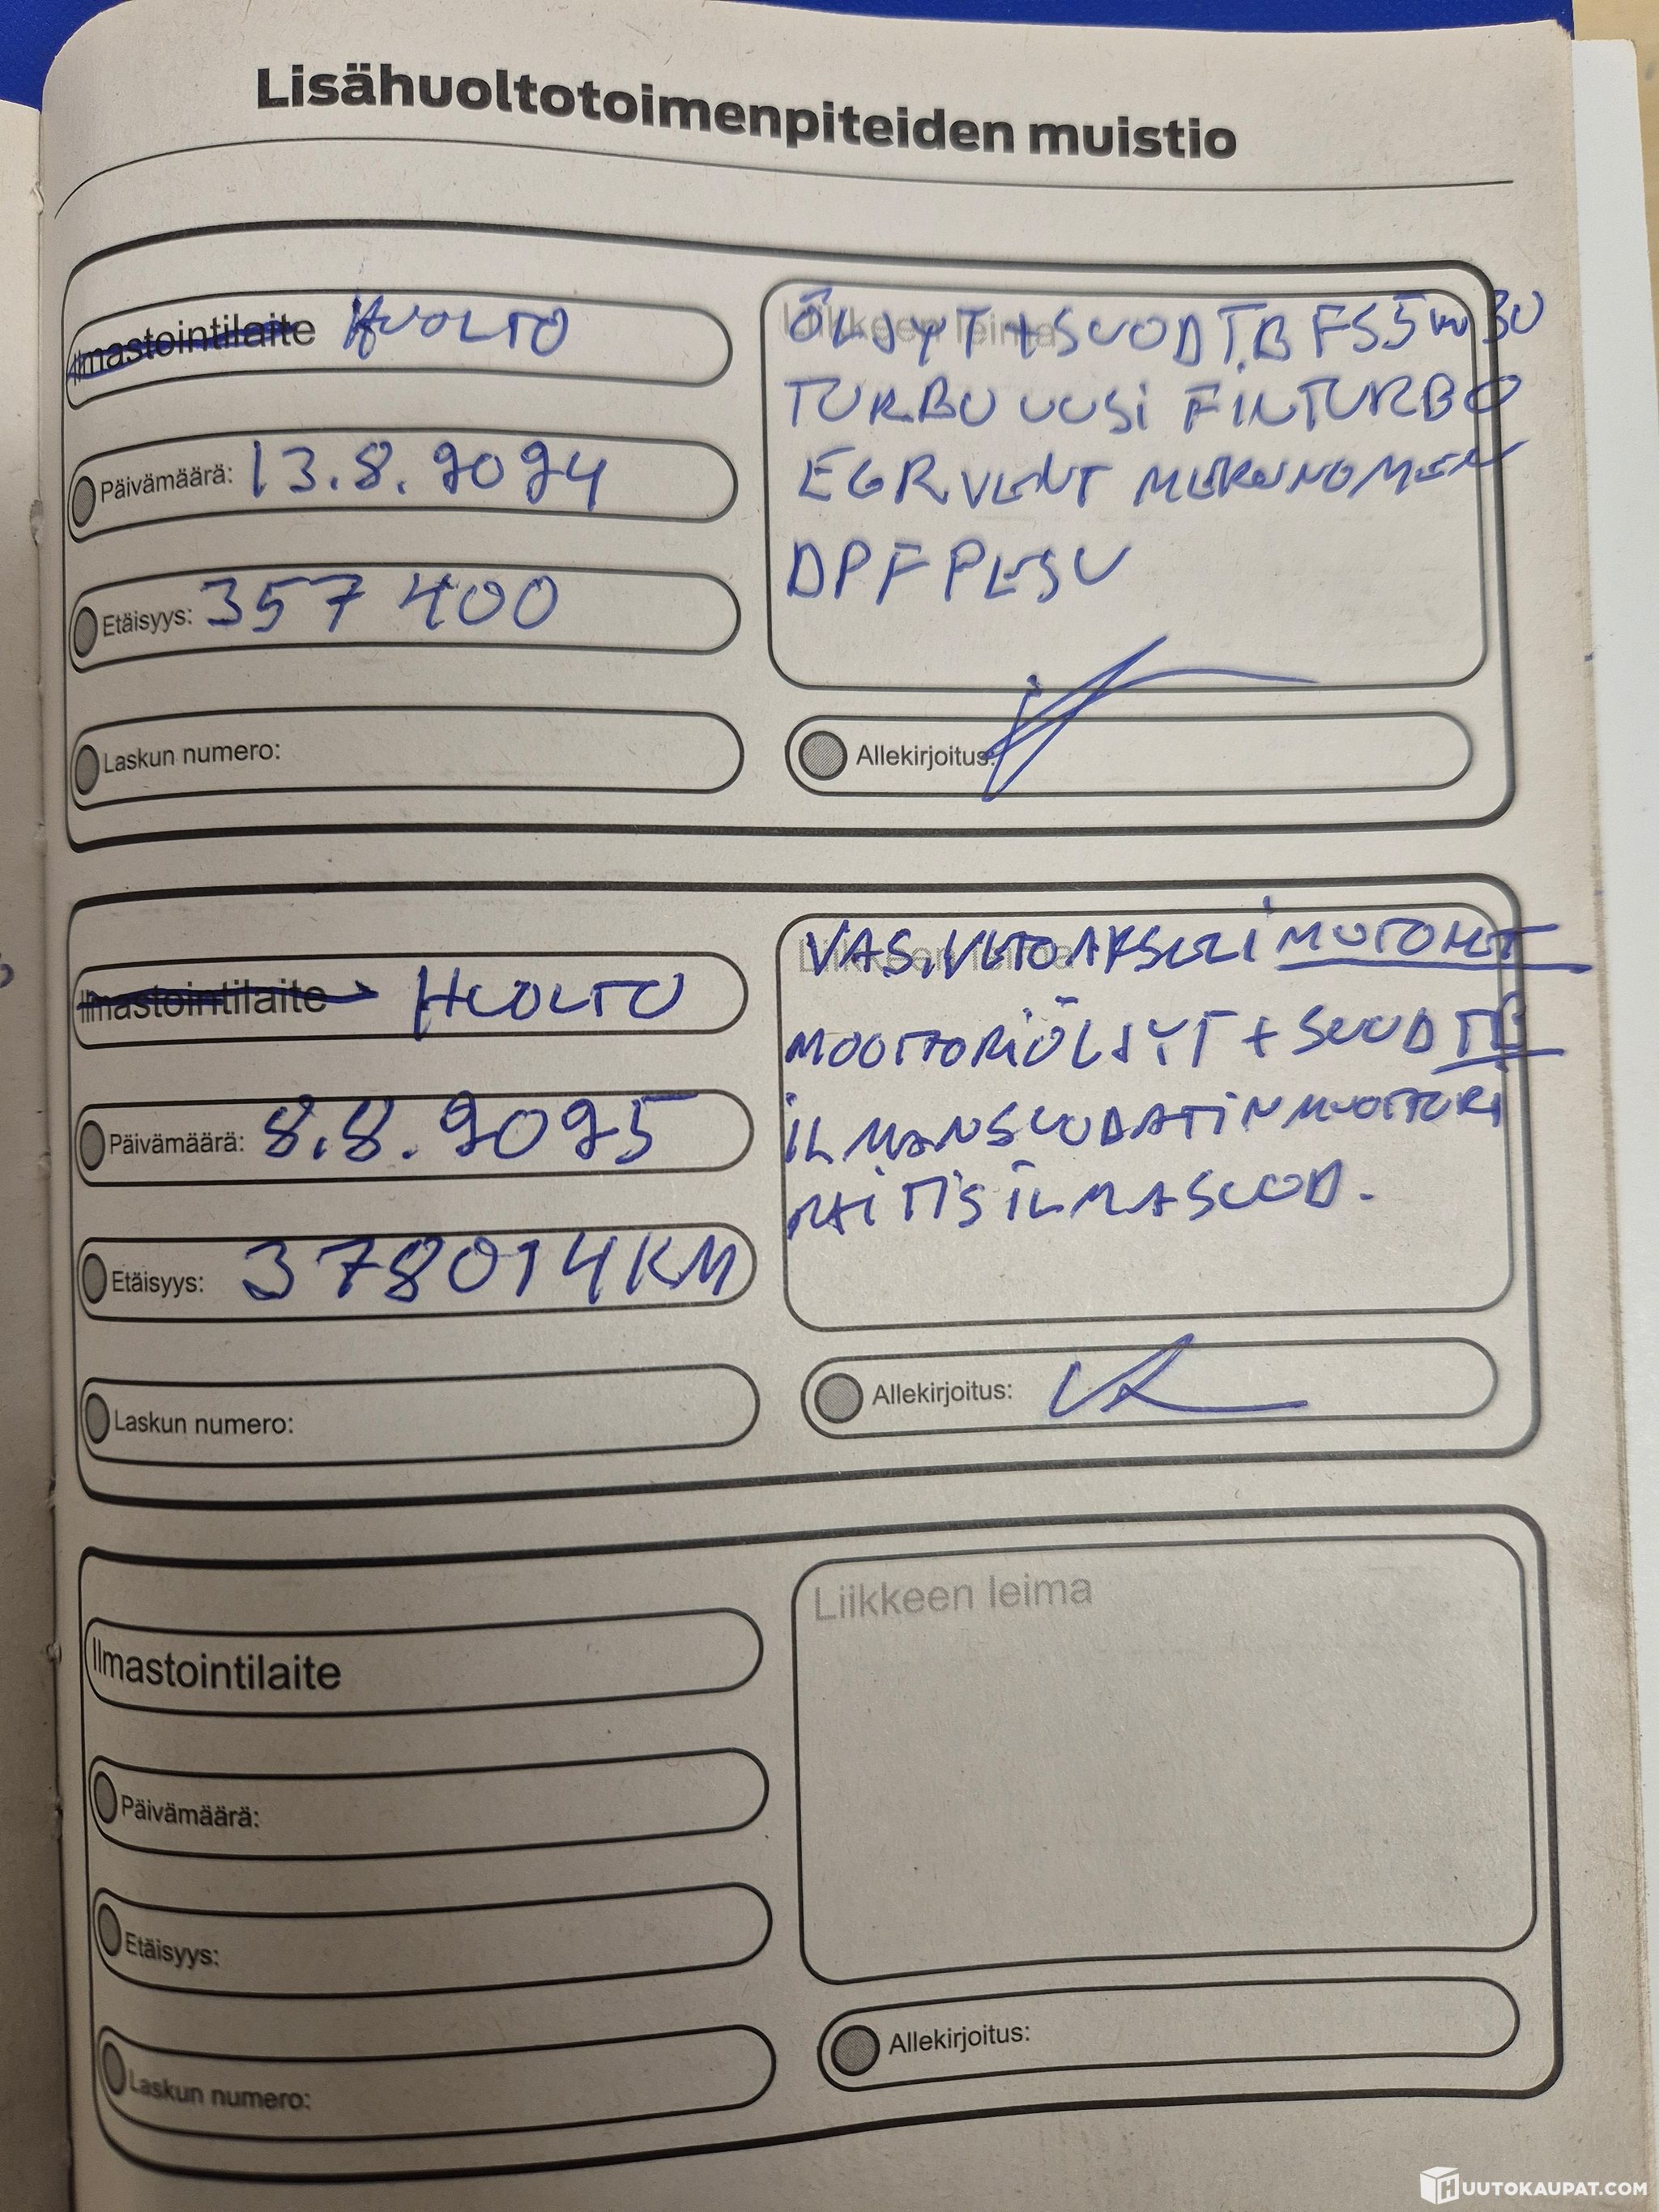 Lisähuoltotoimenpiteiden muistio
Ilmastointilaite HUOLTO
Päivämäärä: 13.8.2024
Etäisyys: 357 400
Laskun numero:
Liikkeen leima
ÖLJYT + SUOD T.B FS 5W30
TURBO UUSI FINTURBO
EGR VENT MEKONOMEN
DPF PESU
Allekirjoitus:
Ilmastointilaite HUOLTO
Päivämäärä: 8.8.2025
Etäisyys: 378014 KM
Laskun numero:
Liikkeen leima
VAS. VETOAKSELI
MOOTTORIÖLJYT + SUOD TB
ILMANSUODATIN MOOTTORI
RAITIS ILMASUOD.
Allekirjoitus:
Ilmastointilaite
Päivämäärä:
Etäisyys:
Laskun numero:
Liikkeen leima
Allekirjoitus:
HUUTOKAUPAT.COM